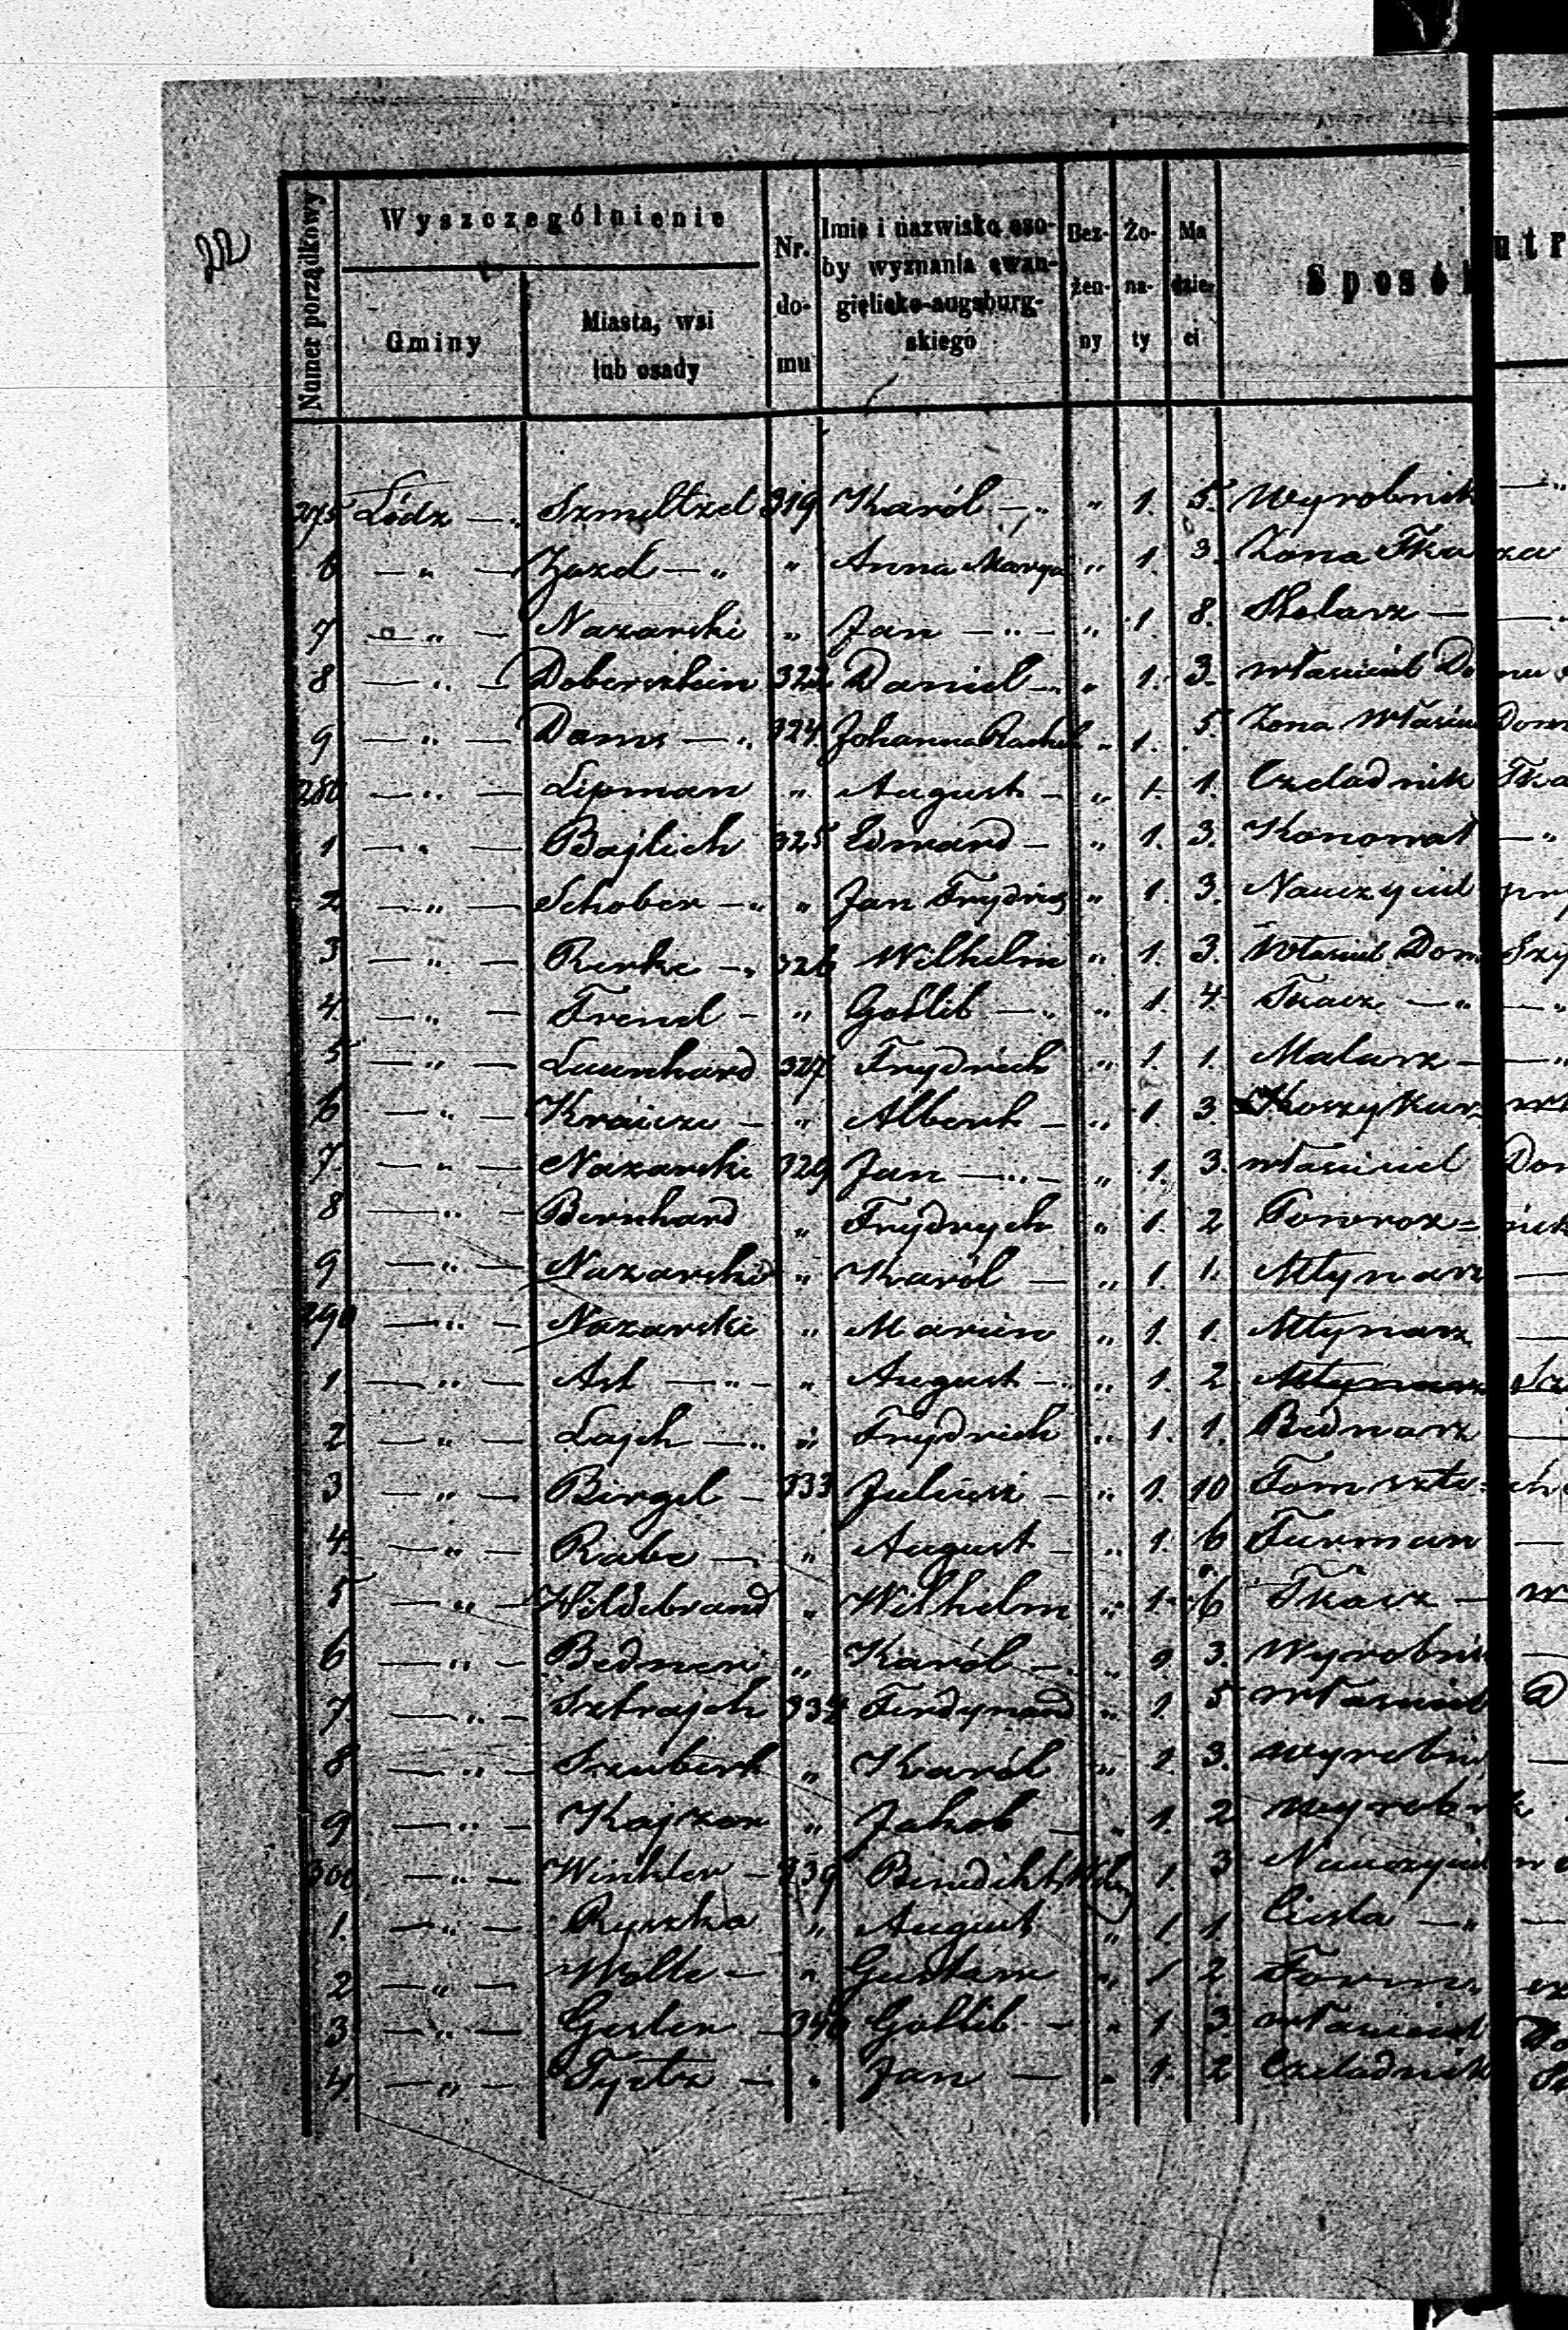 22
Numer porządkowy
Wyszczególnienie
Gminy
Miasta, wsi lub osady
Nr. domu
Imie i nazwisko osoby wyznania ewangielicko-augsburgskiego
Bezżenny
Żonaty
Ma dzieci
Sposób utr
275 Łódz — „ Szmeltzel 319 Karól — „ „ 1. 5. Wyrobnik — „
6 — „ — Zazd — „ „ Anna „ 1. 3. Zona Tkacza
7 — „ — Nazarski „ Jan — „ — „ 1. 8. Stolarz — —
8 — „ — Doberstein 322 Daniel — „ „ 1. 3. właściciel Domu
9 — „ — Doms — „ 324 Johanna „ 1. 5. Zona Właścici Dom
280 — „ — Lipman „ August — „ 1. 1. Czeladnik Tka
1 — „ — Bajlich 325 Edward — „ 1. 3. Konował — „
2 — „ — Schober — „ „ Jan Frydrich „ 1. 3. Nauczyciel pry
3 — „ — Rerke — „ 326 Wilhelm „ 1. 3. Właściel Dom
4 — „ — Frend — „ Gotlib — „ „ 1. 4. Tkacz — „ — „
5 — „ — Launhard 327 Frydrich „ 1. 1. Malarz — — „
6 — „ — Kraicze — „ Albert — „ 1. 3. Koszykarz
7. — „ — Nazarski 329 Jan — „ — „ 1. 3. właściciel Dom
8 — „ — Bernhard „ Frydrych „ 1. 2 Powroz=nik
9 — „ — Nazarski „ Karól — „ 1. 1. Młynarz —
290 — „ — Nazarski „ Marcin „ 1. 1. Młynarz —
1 — „ — Ast — „ — „ August — „ „ 1. 2 Młynarz
2 — „ — Lajch — „ „ Frydrich „ 1. 1. Bednarz —
3 — „ — Birgel — 333 Juliusz — „ 1. 10
4 — „ — Rabe — „ „ August — „ 1. 6 Furman —
5 — „ — Hildebrand „ Wilhelm „ 1. 6 Tkacz —
6 — „ — Bedner „ Karól — „ „ 3. Wyrobni —
7 — „ — Sztrajch 334 Ferdynand „ 1 5 właściciel D
8 — „ — Szubert „ Karól „ 1. 3. wyrobni —
9 — „ — Kajzer „ Jakob — „ 1. 2 wyrobnik
300 — „ — Winkler — 339 Benedikt 1. 3 Nauczyciel
1. — „ — Ryszka „ August „ 1. 1 Ciesla — „ —
2 — „ — Nolte — „ Gustaw „ 1 2
3 — „ — Gesler — 340 Gotlib — „ 1 3. właściciel Do
4. — „ — Tystz — „ Jan — „ 1. 2 Czeladnik